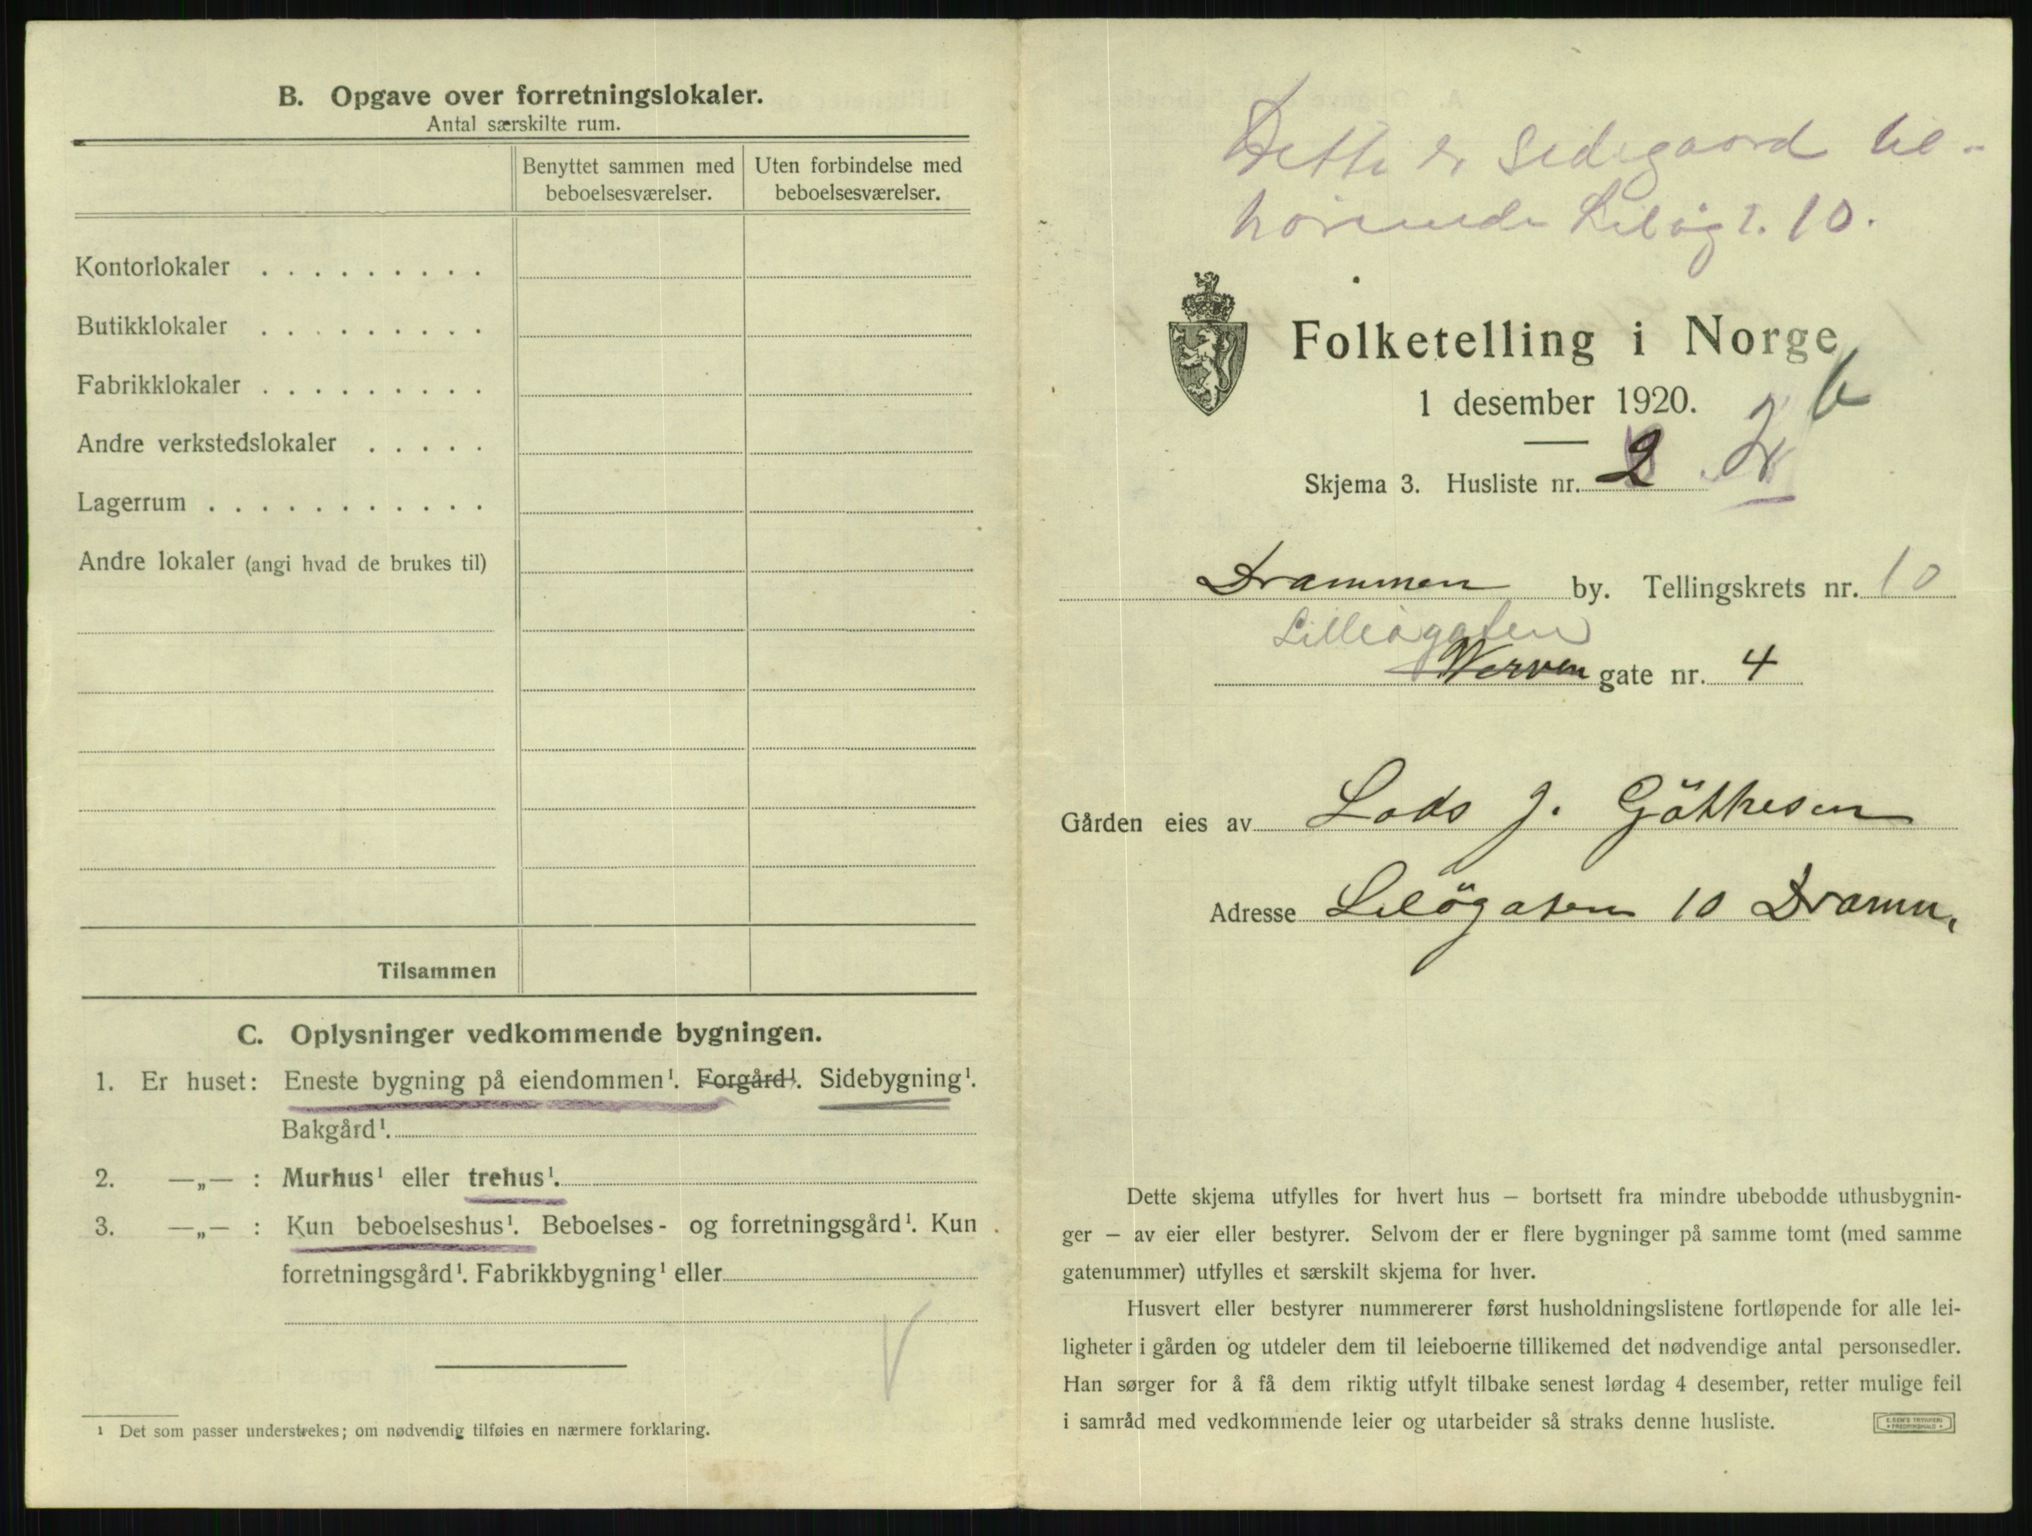 B. Opgave over forretningslokaler.
Antal særskilte rum.
Benyttet sammen med beboelsesværelser.
Uten forbindelse med beboelsesværelser.
Kontorlokaler . . . . . . . . .
Butikklokaler . . . . . . . . .
Fabrikklokaler . . . . . . . . .
Andre verkstedslokaler . . . . .
Lagerrum . . . . . . . . . . .
Andre lokaler (angi hvad de brukes til)
Tilsammen
C. Oplysninger vedkommende bygningen.
1. Er huset: Eneste bygning på eiendommen¹. Forgård¹. Sidebygning¹.
Bakgård¹.
2. —„— : Murhus¹ eller trehus¹.
3. —„— : Kun beboelseshus¹. Beboelses- og forretningsgård¹. Kun
forretningsgård¹. Fabrikkbygning¹ eller
¹ Det som passer understrekes; om nødvendig tilføies en nærmere forklaring.
Dette er Sidegaard til-
hørende Liløgt. 10.
Folketelling i Norge
1 desember 1920.
Skjema 3. Husliste nr. 2
Drammen by. Tellingskrets nr. 10
Lilleøgaten
Werven gate nr. 4
Gården eies av Lods J. Göthesen
Adresse Lilögaten 10 Dramm.
Dette skjema utfylles for hvert hus – bortsett fra mindre ubebodde uthusbygnin-
ger – av eier eller bestyrer. Selvom der er flere bygninger på samme tomt (med samme
gatenummer) utfylles et særskilt skjema for hver.
Husvert eller bestyrer nummererer først husholdningslistene fortløpende for alle lei-
ligheter i gården og utdeler dem til leieboerne tillikemed det nødvendige antal personsedler.
Han sørger for å få dem riktig utfylt tilbake senest lørdag 4 desember, retter mulige feil
i samråd med vedkommende leier og utarbeider så straks denne husliste.